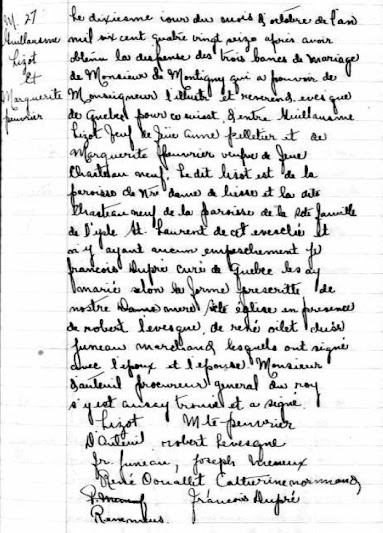 M. 27
Guillausme
Lizot
et
Marguerite
peuvrier
Le dixiesme iour du mois d'octobre de l'an
mil six cent quatre vingt seize apres avoir
obtenu la dispense des trois bancs de mariage
de Monsieur de Montigny qui a pouvoir de
Monseigneur l'illustr et reverend evesque
de Quebec pour ce suiset d'entre Guillausme
Lizot feuf de feue anne pelletier et de
Marguerite peuvrier veufve de feue
Chasteau neuf; Le dit lisot est de la
paroisse de Nre dame de liesse et la dite
Chasteau neuf de la paroisse de la Ste famille
de l'ysle St. Laurent de cet evesché et
n'y ayant aucun empeschement je
francois Dupré curé de Quebec les ay
marié selon la forme prescritte de
nostre Damme mere Ste église en presence
de robert levesque, de rené oilet
Juneau marchand lesquels ont signé
avec l'epoux et l'epouse Monsieur
d'auteuil procureur general du roy
s'y est aussy trouvé et a signé.
Lizot M-te-peuvrier
D'Auteuil robert Levesque
fr. Juneau, Joseph
René Oouallet Catturine normmand
François Dupré